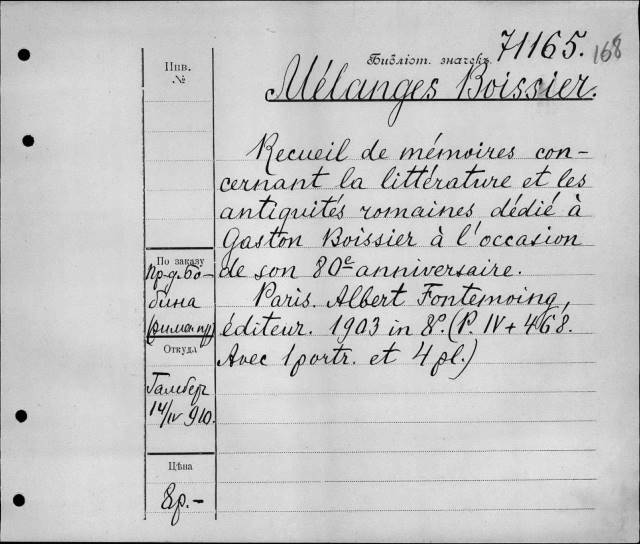 71165. 168
Инв. Библіот. значекъ
№
Mélanges Boissier.
Recueil de mémoires con-
cernant la littérature et les
antiquités romaines dédié à
Gaston Boissier à l'occasion
de son 80e anniversaire.
Paris. Albert Fontemoing,
éditeur. 1903 in 8º. (P. IV + 468.
Avec 1 portr. et 4 pl.)
По заказу
Пр-д. Бо-
бина
Откуда
Гамбер
14/IV 910.
Цѣна
8р.-